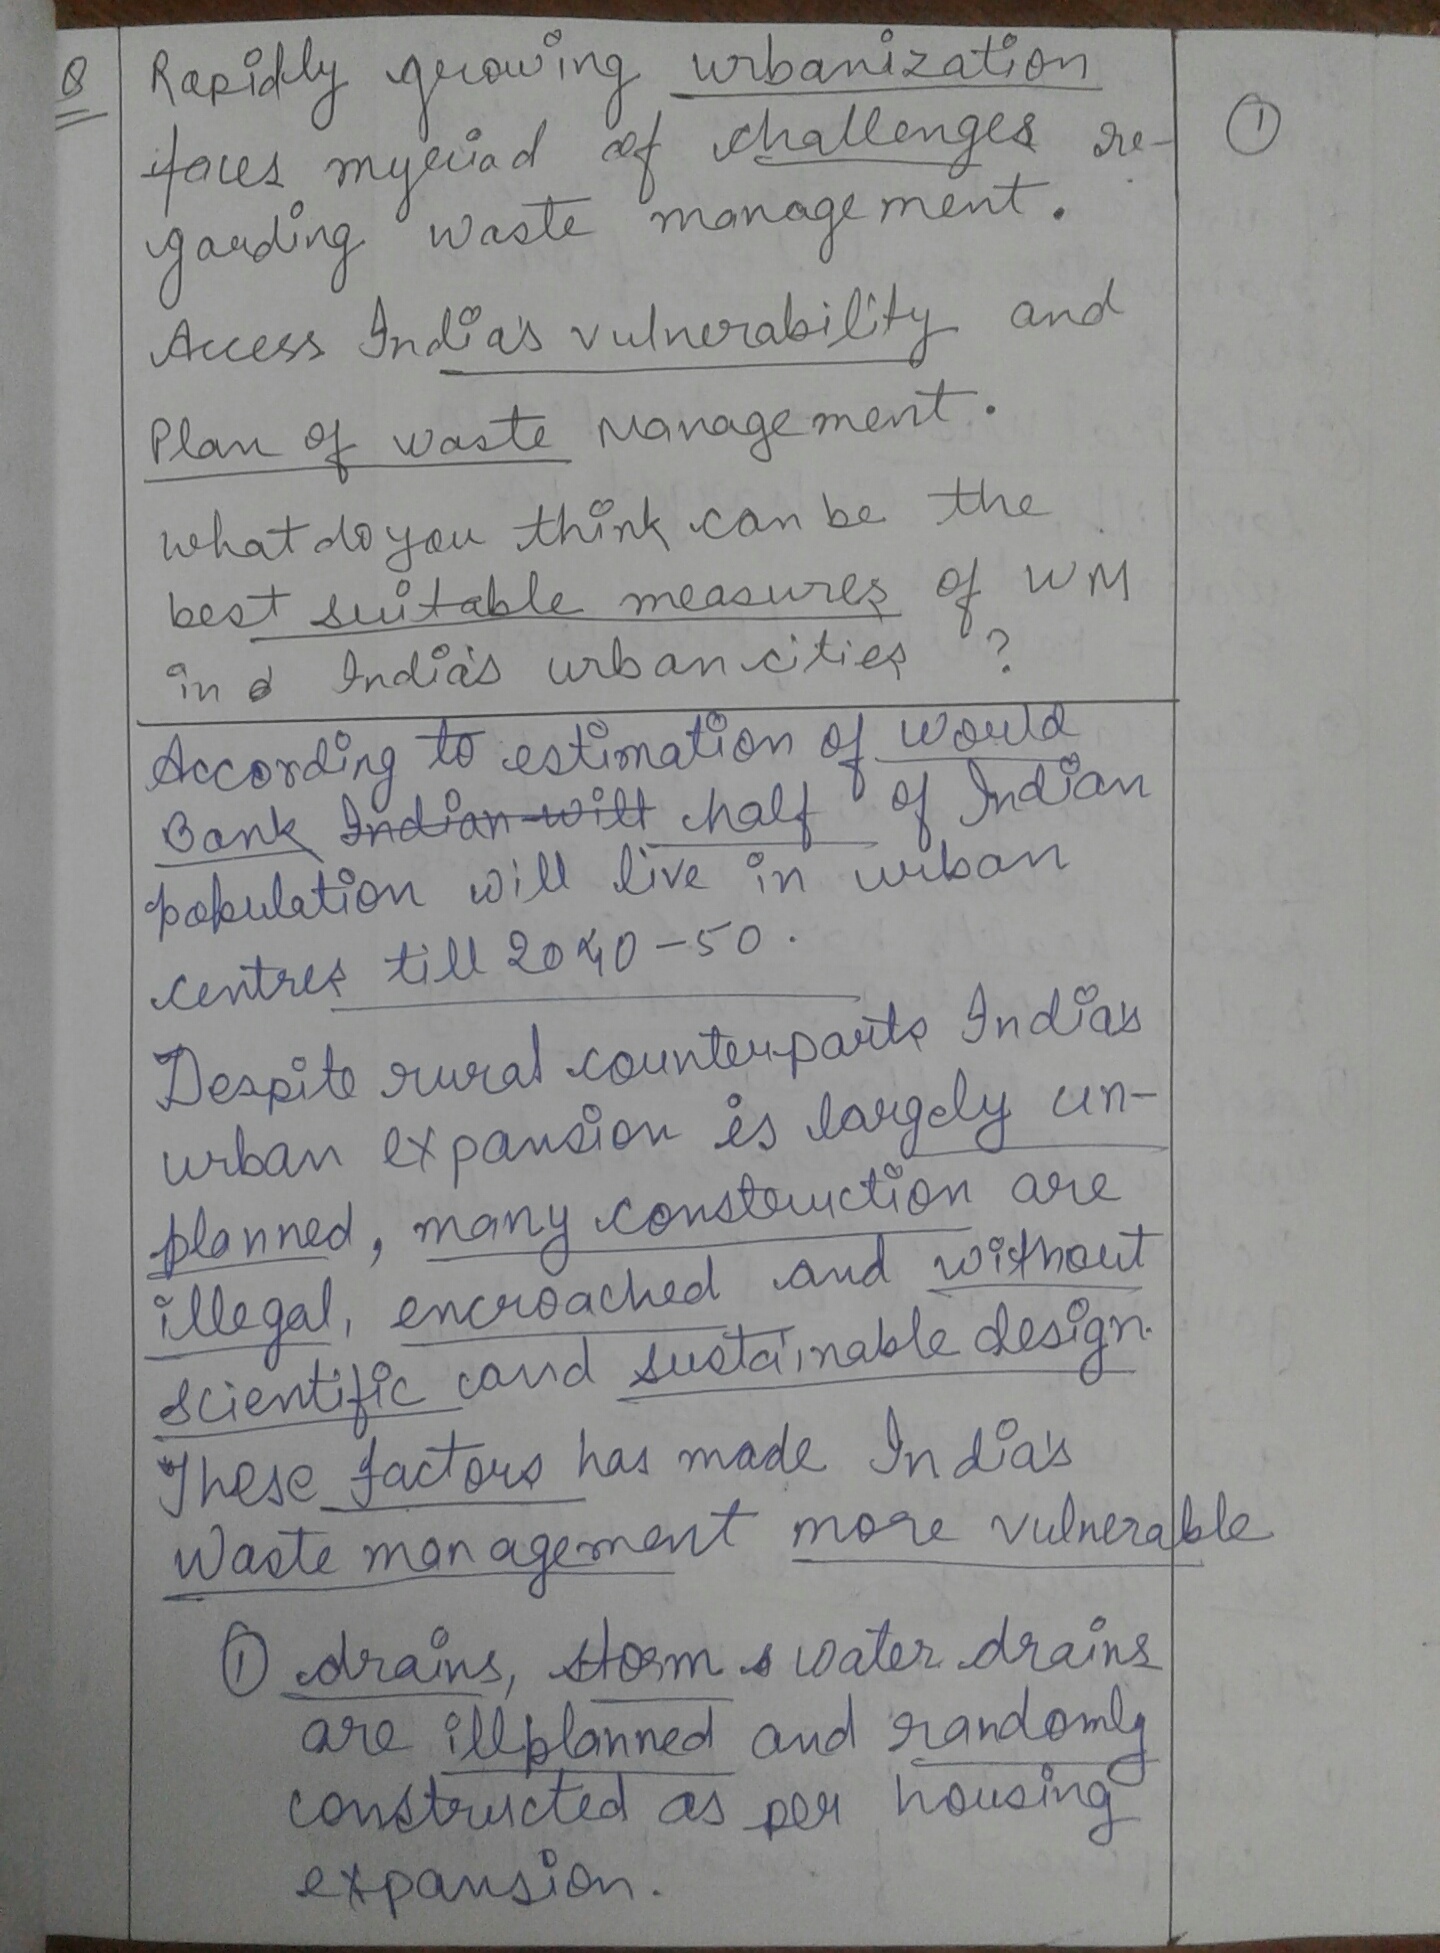 Q Rapidly growing urbanization
faces myriad of challenges re- ①
garding waste management.
Access India's vulnerability and
Plan of waste Management.
What do you think can be the
best suitable measures of WM
in India's urban cities ?
According to estimation of World
Bank Indian will half of Indian
population will live in urban
centres till 2040-50.
Despite rural counterparts India's
urban expansion is largely un-
planned, many construction are
illegal, encroached and without
scientific and sustainable design.
These factors has made India's
Waste management more vulnerable
① drains, storm water drains
are illplanned and randomly
constructed as per housing
expansion.